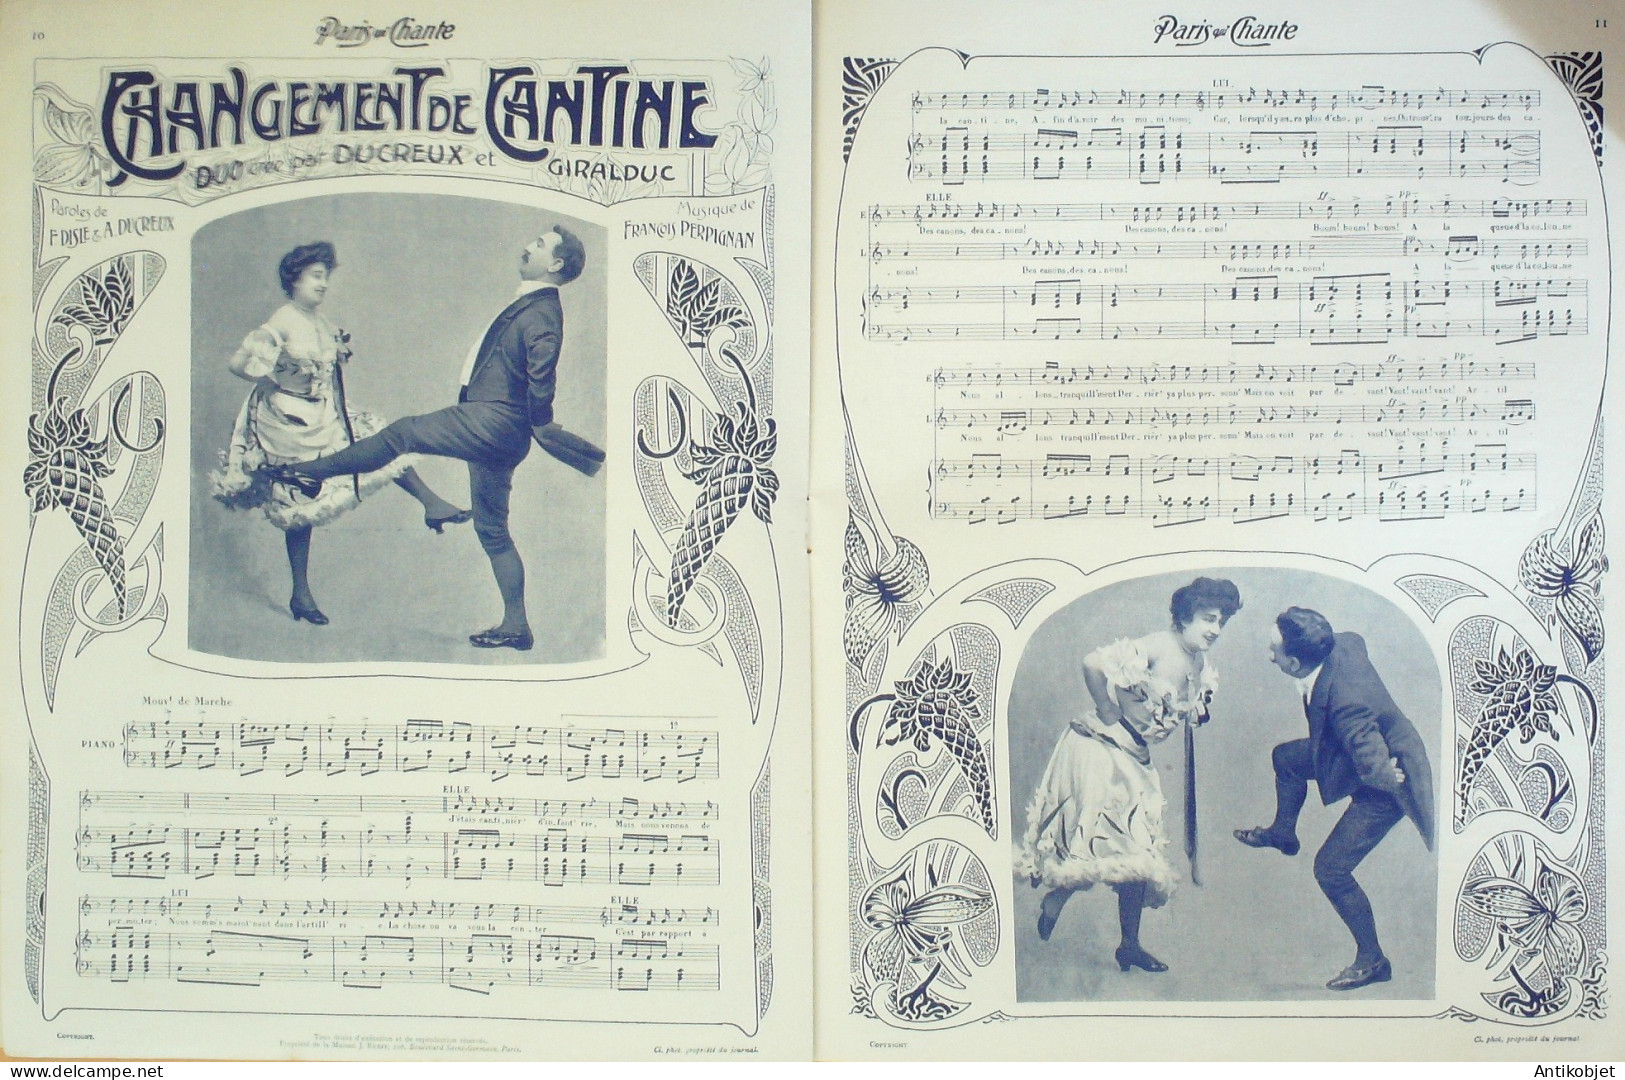 10
Paris qui Chante
CHANGEMENT DE CANTINE
DUO créé par DUCREUX et GIRALDUC
Paroles de
F. DISLE & A. DUCREUX
Musique de
FRANÇOIS PERPIGNAN
Mouvt de Marche
PIANO
ff
1º
2º
ELLE
J'étais cantinièr' d'infant'rie, Mais nous venons de
LUI
ELLE
permuter; Nous somm's maint'nant dans l'artill'rie La chose on va vous la conter C'est par rapport à
COPYRIGHT.
Tous droits d'exécution et de reproduction réservés.
Boulevard Saint-Germain, Paris.
Cl. phot. propriété du journal.
Paris qui Chante
11
LUI.
la cantine, Afin d'avoir des munitions; Car, lorsqu'il y aura plus d'chopines, toujours des ca
ELLE
ff
pp
E
Des canons, des canons! Des canons, des canons! Boum! boum! boum! A la queue d'la colonne
L
nons! Des canons, des canons! Des canons, des canons! A la queue d'la colonne
ff
pp
ff
pp
E
Nous allons tranquill'ment Derrièr' ya plus personn' Mais on voit par devant! Vant! vant! vant! Artil
ff
pp
L
Nous allons tranquill'ment Derrièr' ya plus personn' Mais on voit par devant! Vant! vant! vant! Artil
ff
pp
COPYRIGHT
Cl. phot. propriété du journal
Antikobjet